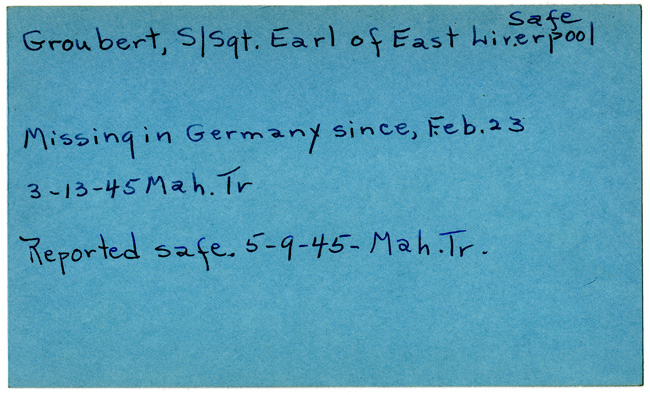 safe
Groubert, S/Sgt. Earl of East Liverpool
Missing in Germany since, Feb. 23
3-13-45 Mah. Tr
Reported safe. 5-9-45- Mah. Tr.